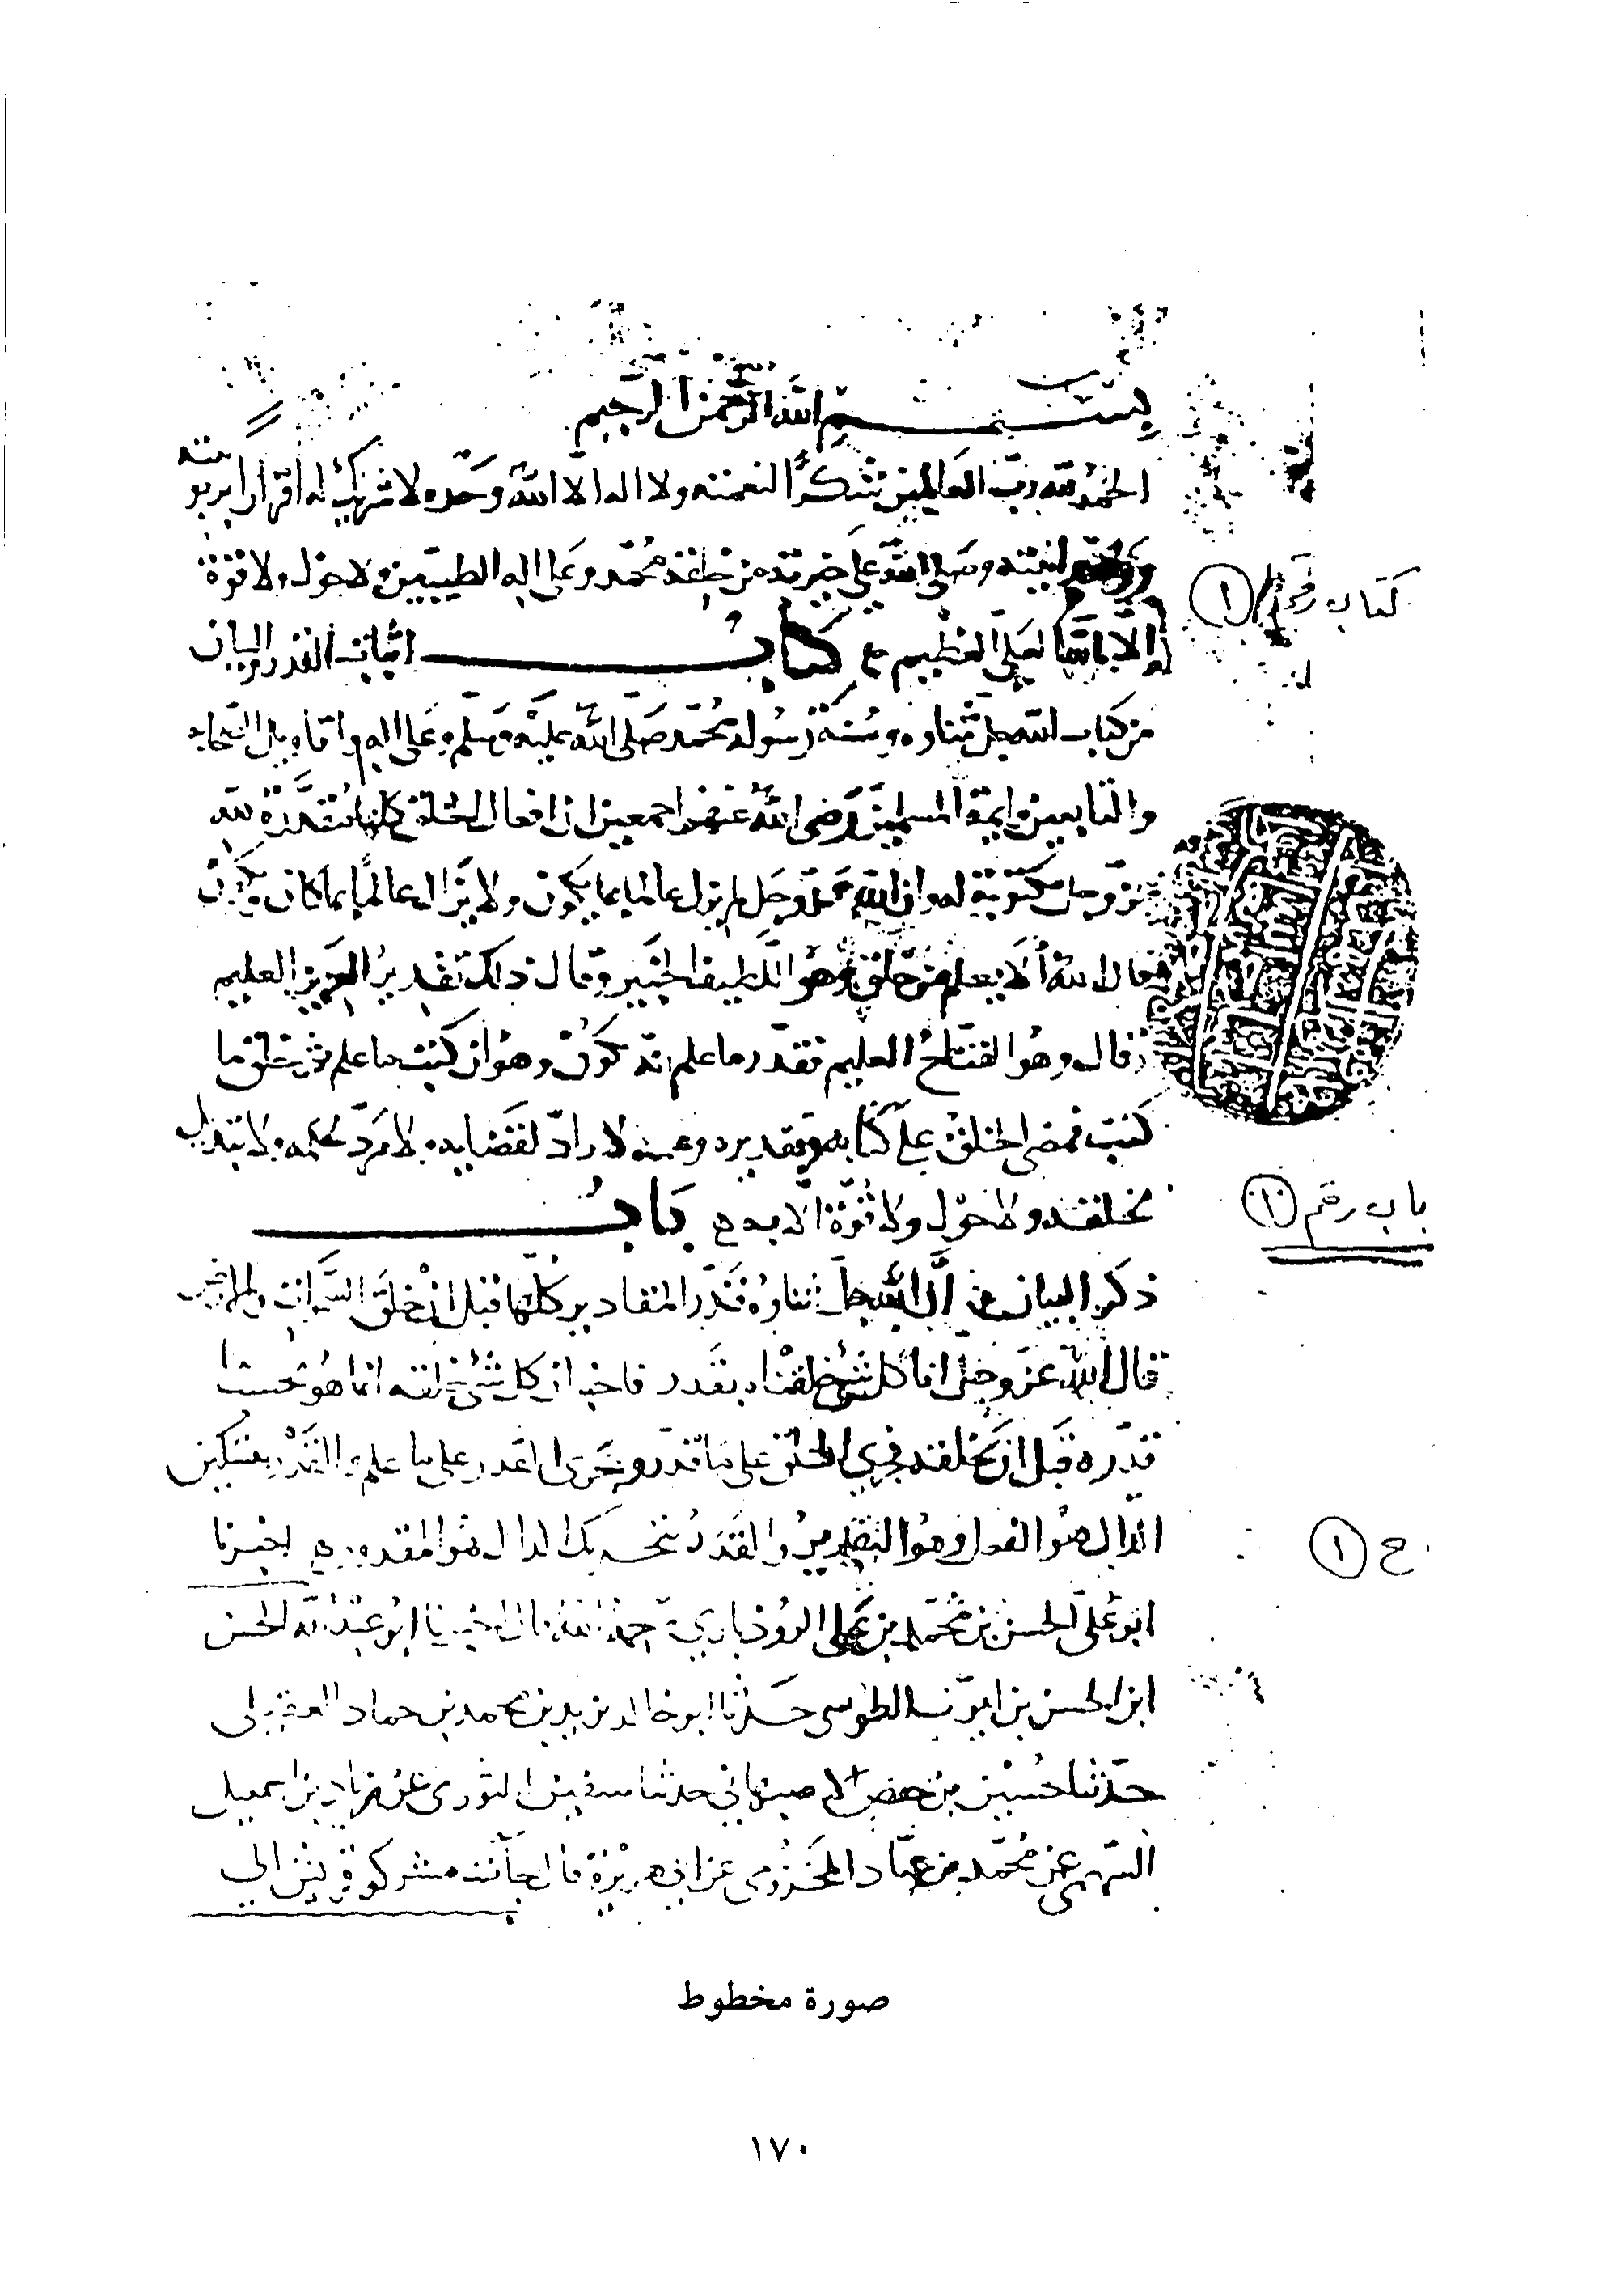 بسم الله الرحمن الرحيم
الحمد لله رب العالمين شكرا لنعمته ولا اله الا الله وحده لا شريك له اقرارا بربوبيته
وصلى الله على خيرته من خلقه محمد وعلى اله الطيبين ولا حول ولا قوة
كتاب رقم (١)
الا بالله العلي العظيم كتاب اثبات القدر والبيان
من كتاب الله جل ثناوه وسنة رسوله محمد صلى الله عليه وسلم وعلى اله واقاويل الصحابه
والتابعين وايمة المسلمين رضي الله عنهم اجمعين ان افعال الخلق كلها مقدرة لله
عز وجل مكتوبة له وان الله عز وجل لم يزل عالما بما يكون ولا يزال عالما بما كان ويكون
فقال الله ألا يعلم من خلق وهو اللطيف الخبير وقال ذلك تقدير العزيز العليم
وقال وهو الفتاح العليم فقدر ما علم كونه وهو ان كتب ما علم ثم خلق ما
كتب فمضى الخلق على كتابه وتقديره لا راد لقضايه ولا مرد لحكمه ولا تبديل
لخلقه ولا حول ولا قوة الا به باب
باب رقم (١)
ذكر البيان ان الله جل ثناوه قدر المقادير كلها قبل ان يخلق السموات والارض
قال الله عز وجل انا كل شئ خلقناه بقدر فاخبر ان كل شئ خلقه انما هو بحسب ما
قدره قبل ان يخلقه فجرى الخلق على ما قدر وجرى القدر على ما علم والقدر بتسكين
الدال هو الفعل وهو التقدير والقدر بتحريك الدال هو المقدور اخبرنا
ح (١)
ابو علي الحسين بن محمد بن علي الروذباري رحمه الله قال اخبرنا ابو عبد الله الحسين
ابن الحسن بن ايوب الطوسي حدثنا ابو خالد يزيد بن محمد بن حماد العقيلي
حدثنا حسين بن حفص الاصبهاني حدثنا سفين الثوري عن زياد بن اسمعيل
السهمي عن محمد بن عباد المخزومي عن ابي هريرة قال جات مشركو قريش الي
صورة مخطوط
١٧٠